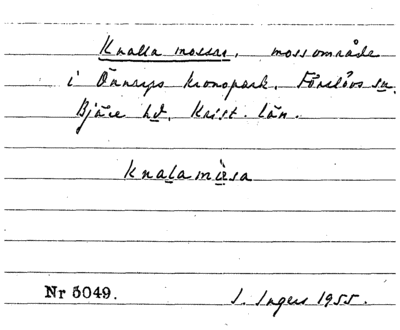 Knalla mossar, mossområde
i Önnarps kronopark, Förslövs sn,
Bjäre hd, Krist. län.
Knalamåsa
Nr 5049.
I. Ingers 1955.